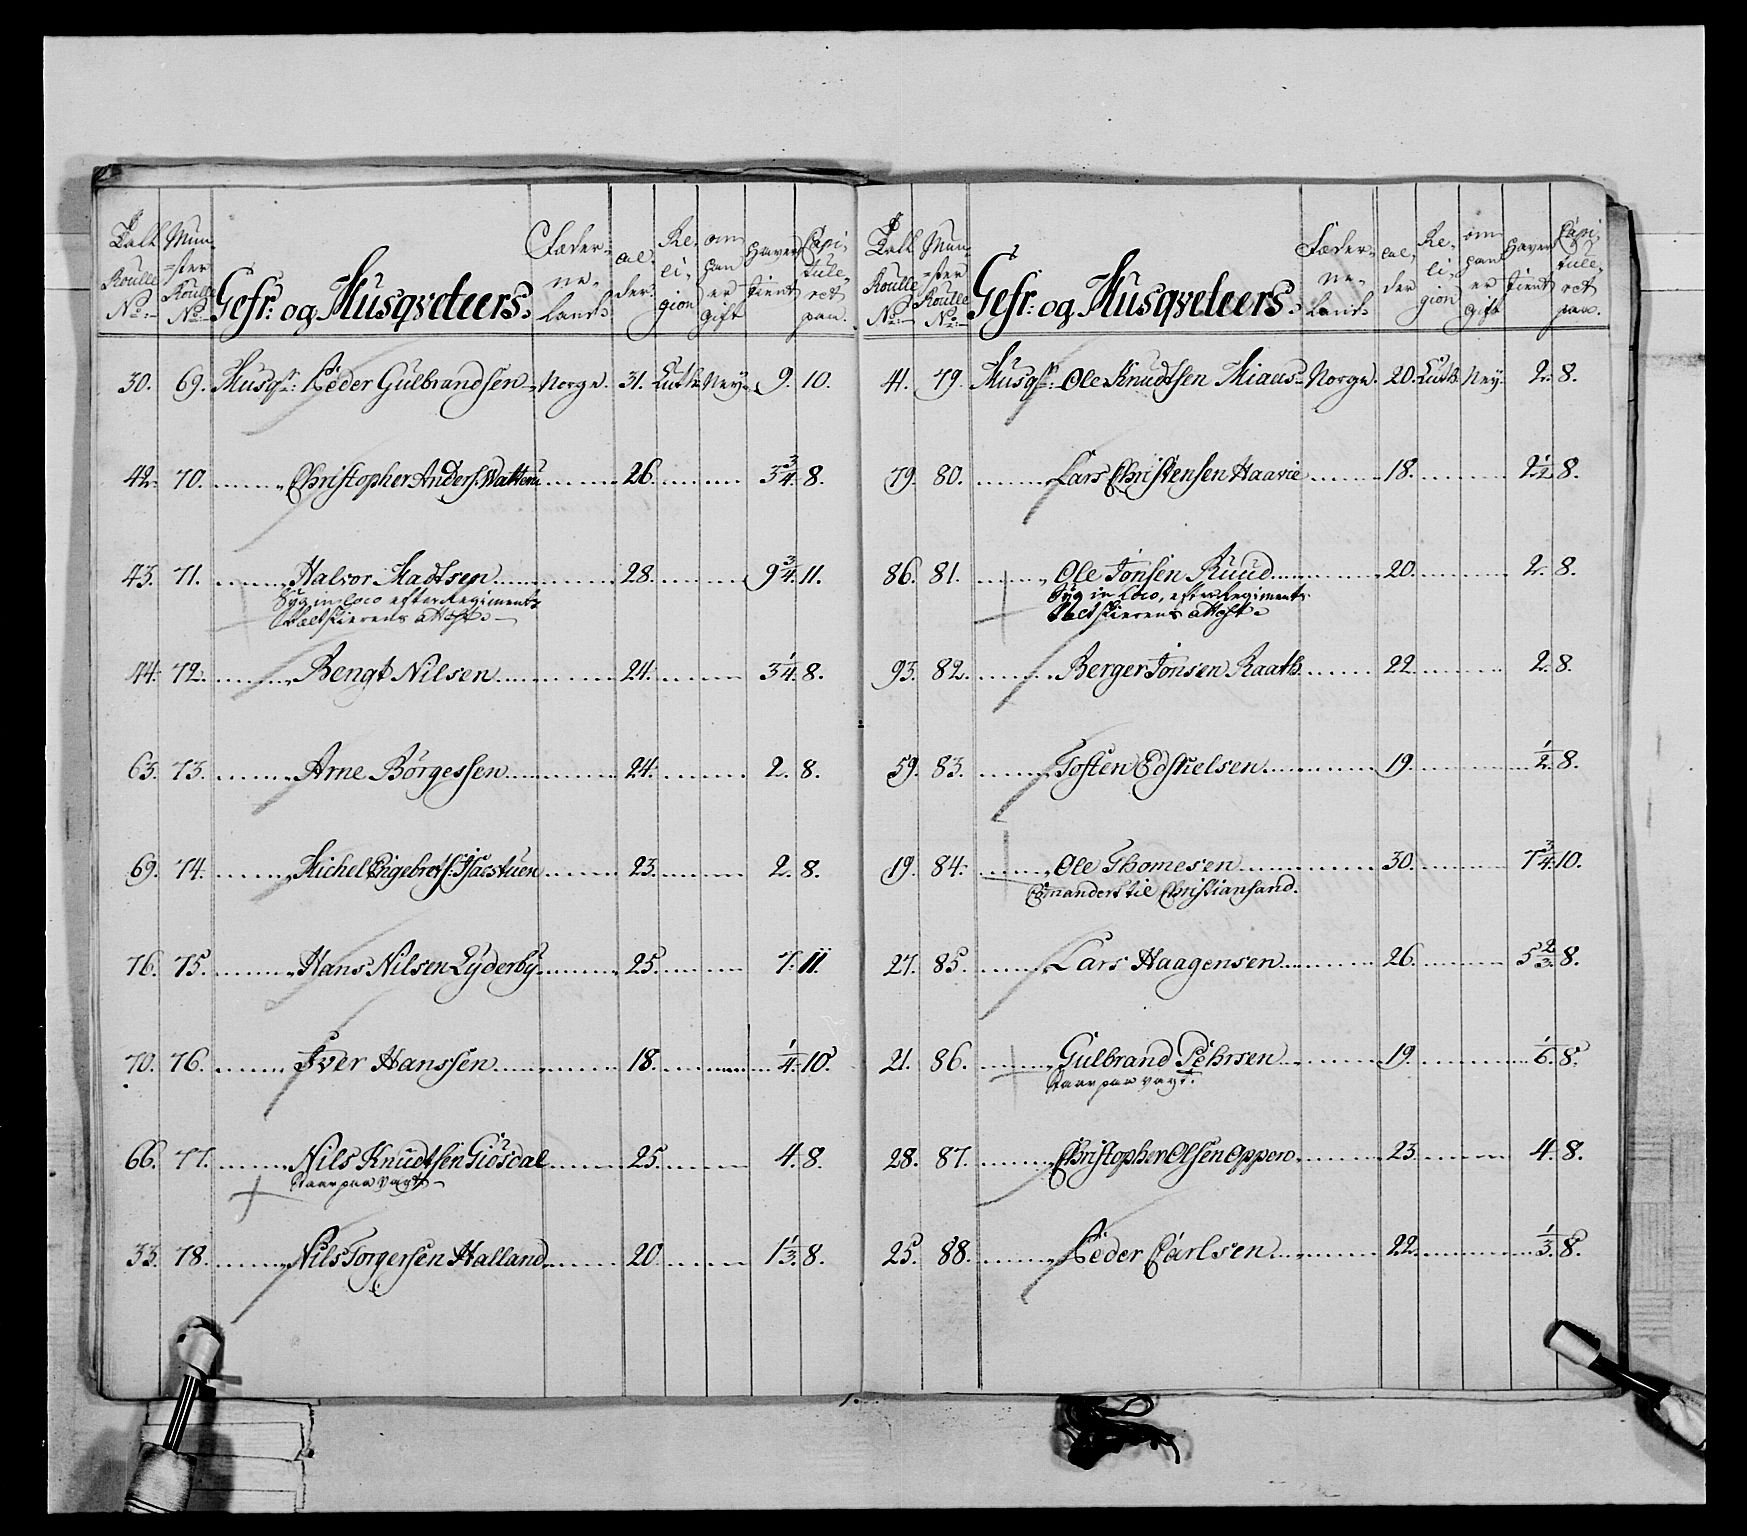 Talt Roulle No:
Mun-ster Roulle No:
Gefr: og Musqveteers.
Fæderne-Land:
al-der
Re-li-gion
om han er Gift
haver tient
Capi-tule-ret paa.
30. 69. Musqr: Peder Gulbrandsen Norge. 31. Luth: Ney 9. 10.
42. 70. Christopher Anders: 26. 3 3/4. 8.
43. 71. Halvor Madtsen 28. 9 3/4. 11.
Syg in loco efter Regiments
Feltskierens attest.
44. 72. Bengt Nilsen 24. 3 1/4. 8.
63. 73. Arne Börgessen 24. 2. 8.
69. 74. Michel Engebrets: 23. 2. 8.
76. 75. Hans Nilsen Lyderby 25. 7. 11.
70. 76. Iver Hanssen 18. 1/4. 10.
66. 77. Nils Knudtsen Giösdal 25. 4. 8.
Staar paa vagt.
33. 78. Nils Torgersen Halland 20. 1 1/3. 8.
Talt Roulle No:
Mun-ster Roulle No:
Gefr: og Musqveteers.
Fæder-ne-Land:
al-der
Re-li-gion
om han er Gift
haver tient
Capi-tule-ret paa.
41. 79. Musqr: Ole Knudtsen Miaus Norge. 20. Luth: Ney 2. 8.
79. 80. Lars Christensen Haavie 18. 2 1/2. 8.
86. 81. Ole Jonsen Ruud 20. 2. 8.
Syg in Loco, efter Regiments
Feltskierens attest.
93. 82. Berger Jonsen Raath 22. 2. 8.
59. 83. Tosten Edskielsen 19. 1/2. 8.
19. 84. Ole Thomesen 30. 7 3/4. 10.
Comandert til Christiansand.
27. 85. Lars Haagensen 26. 5 2/3. 8.
21. 86. Gulbrand Pehrsen 19. 1/6. 8.
Staar paa vagt.
28. 87. Christopher Olsen Oppero 23. 4. 8.
25. 88. Peder Carlsen 22. 1/3. 8.